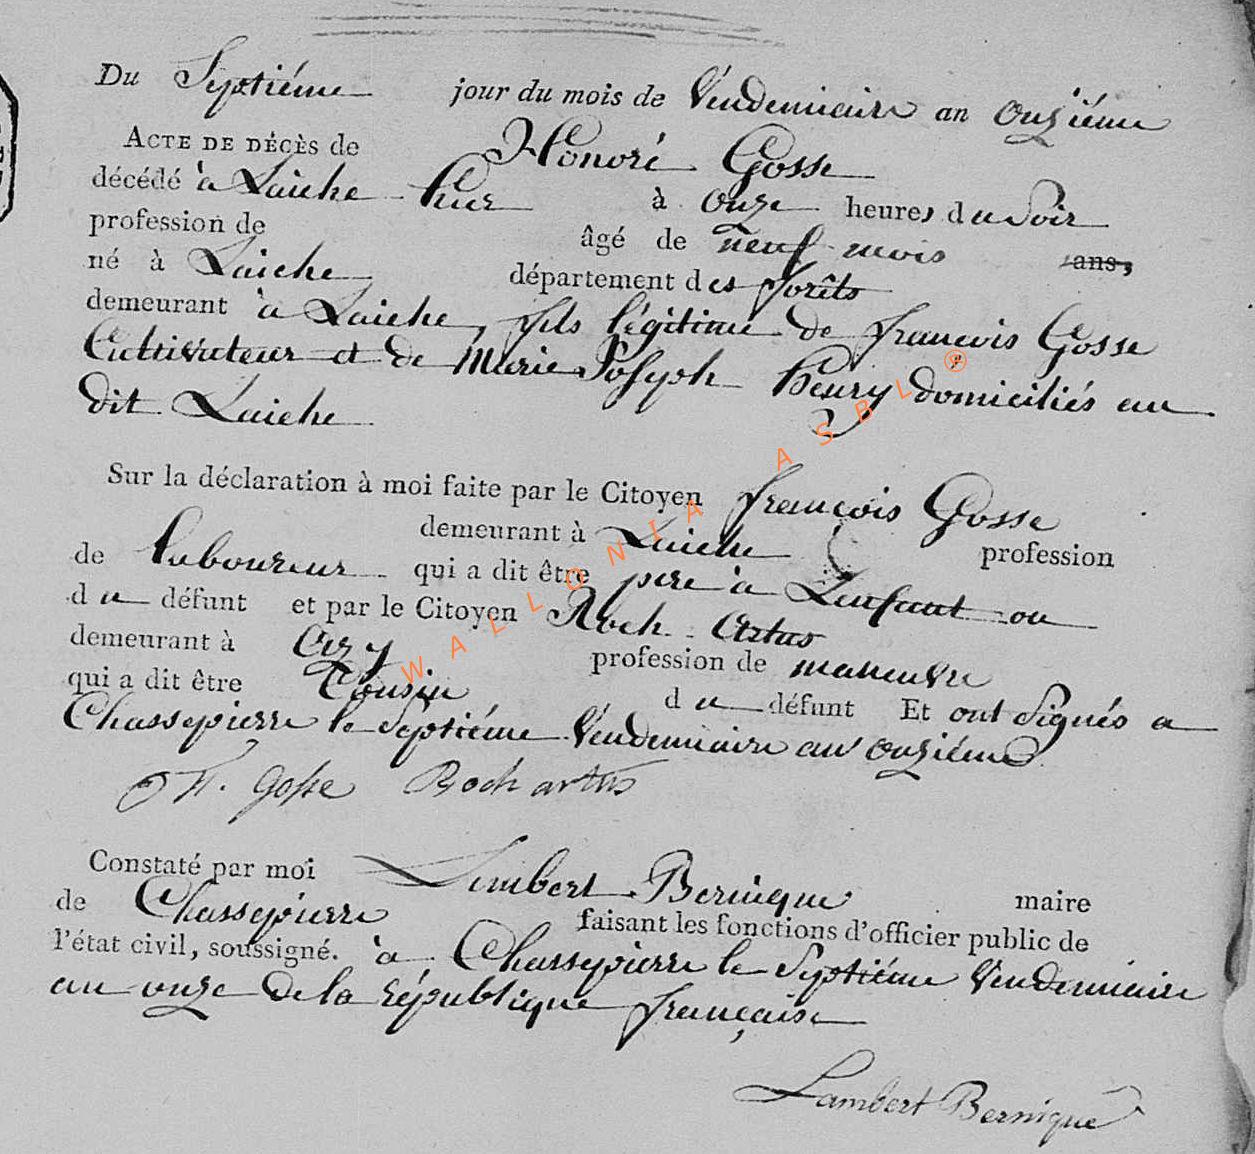 Du Septiéme jour du mois de Vendemiaire an onziéme
ACTE DE DÉCÈS de Honoré Gosse
décédé à Laiche hier à onze heures du Soir
profession de âgé de neuf mois ans,
né à Laiche département des forêts
demeurant à Laiche, fils légitime de francois Gosse
Cultivateur et de Marie Joseph henry domiciliés au
dit Laiche
Sur la déclaration à moi faite par le Citoyen françois Gosse
demeurant à Laiche profession
de laboureur qui a dit être pere à L'enfant ou
du défunt et par le Citoyen Roch Artus
demeurant à Izy profession de maneuvre
qui a dit être Cousin du défunt Et ont Signés a
Chassepierre le Septiéme Vendemiaire an onziéme
F. Gosse Roch artus
Constaté par moi Lambert Bernique maire
de Chassepierre faisant les fonctions d'officier public de
l'état civil, soussigné. à Chassepierre le Septiéme Vendemiaire
an onze de la république française
Lambert Bernique
WALLONIA ASBL ®